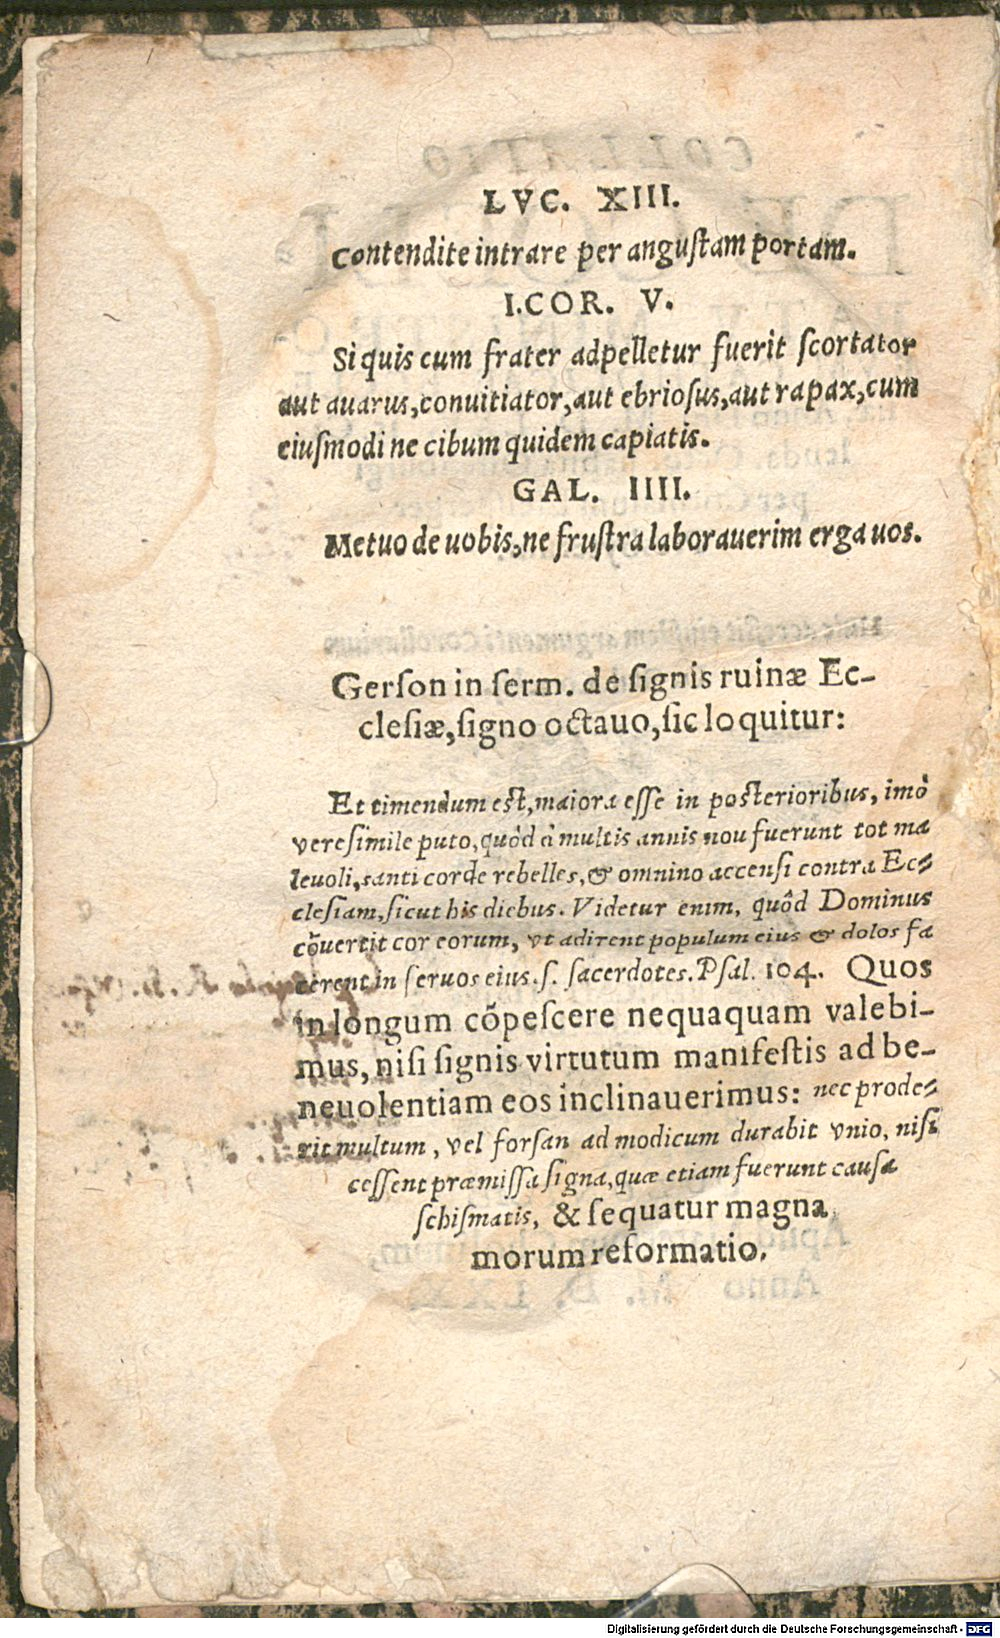 LVC. XIII.
Contendite intrare per angustam portam.
I. COR. V.
Si quis cum frater adpelletur fuerit scortator
aut auarus, conuitiator, aut ebriosus, aut rapax, cum
eiusmodi ne cibum quidem capiatis.
GAL. IIII.
Metuo de uobis, ne frustra laborauerim erga uos.
Gerson in serm. de signis ruinæ Ec-
clesiæ, signo octauo, sic loquitur:
Et timendum est, maiora esse in posterioribus, imò
veresimile puto, quòd à multis annis nou fuerunt tot ma
leuoli, santi corde rebelles, & omnino accensi contra Ec-
clesiam, sicut his diebus. Videtur enim, quôd Dominus
cõuertit cor eorum, vt adirent populum eius & dolos fa
cerent in seruos eius. s. sacerdotes. Psal. 104. Quos
in longum cõpescere nequaquam valebi-
mus, nisi signis virtutum manifestis ad be-
neuolentiam eos inclinauerimus: nec prode-
rit multum, vel forsan ad modicum durabit vnio, nisi
cessent præmissa signa, quæ etiam fuerunt causa
schismatis, & sequatur magna
morum reformatio.
Digitalisierung gefördert durch die Deutsche Forschungsgemeinschaft - DFG